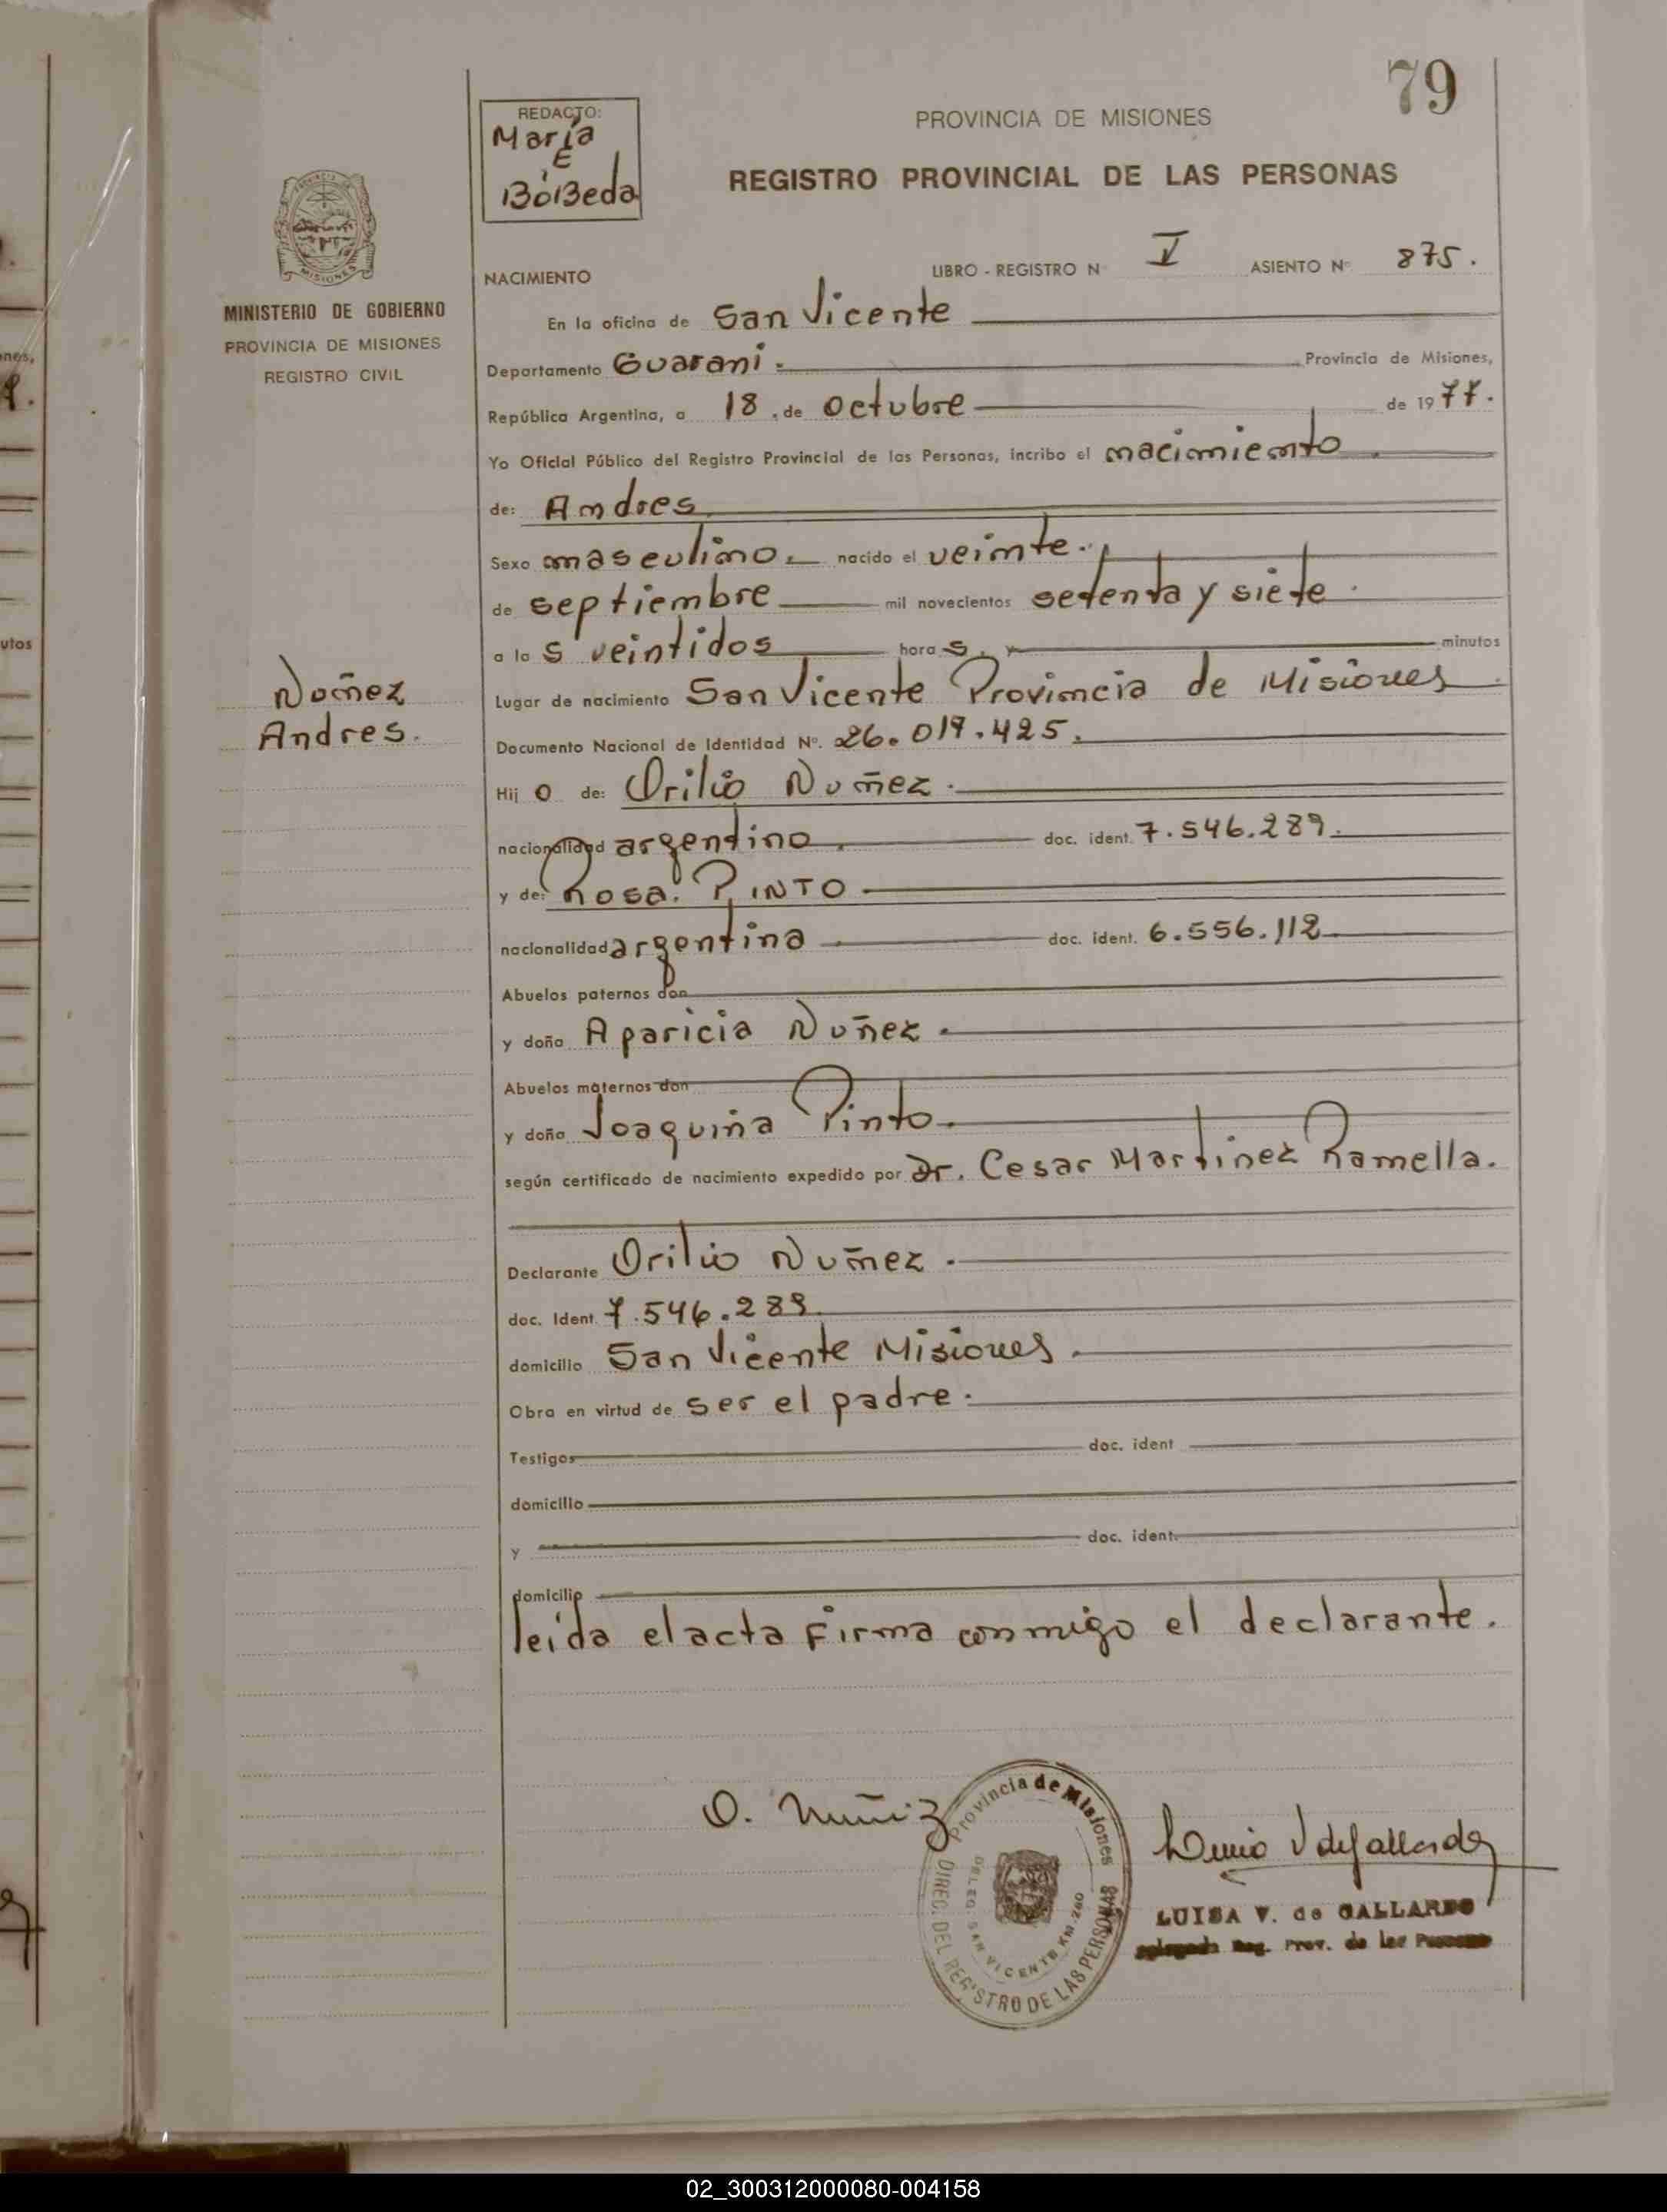 79
REDACTO:
María
E
BóBeda
PROVINCIA DE MISIONES
REGISTRO PROVINCIAL DE LAS PERSONAS
MISIONES
MINISTERIO DE GOBIERNO
PROVINCIA DE MISIONES
REGISTRO CIVIL
NACIMIENTO LIBRO - REGISTRO N° I ASIENTO N° 875.
En la oficina de San Vicente
Departamento Guarani. Provincia de Misiones,
República Argentina, a 18 de octubre de 1977.
Yo Oficial Público del Registro Provincial de las Personas, incribo el nacimiento
de: Andres
Sexo masculino. nacido el veinte.
de septiembre mil novecientos setenta y siete.
a la s veintidos hora s. y minutos
Nuñez
Andres.
Lugar de nacimiento San Vicente Provincia de Misiones
Documento Nacional de Identidad N°. 26.017.425.
Hij o de: Orilio Nuñez.
nacionalidad argentino. doc. ident. 7.546.289.
y de: Rosa. PINTO
nacionalidad argentina doc. ident. 6.556.112
Abuelos paternos don
y doña Aparicia Nuñez.
Abuelos maternos don
y doña Joaquina Pinto.
según certificado de nacimiento expedido por Dr. Cesar Martinez Ramella.
Declarante Orilio Nuñez.
doc. Ident. 7.546.289.
domicilio San Vicente Misiones.
Obra en virtud de ser el padre.
Testigos doc. ident
domicilio
y doc. ident.
domicilio
leida el acta firma conmigo el declarante.
O. Nuñiz
Provincia de Misiones
DIREC. DEL REGISTRO DE LAS PERSONAS
DELEG. SAN VICENTE KM. 260
LUISA V. de GALLARDO
Reg. Prov. de las Personas
02_300312000080-004158